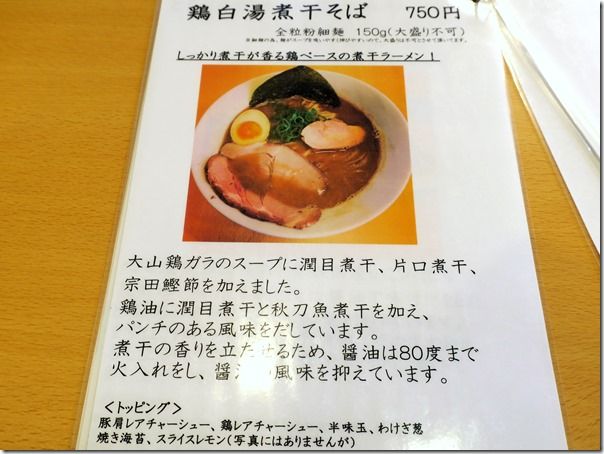 鶏白湯煮干そば　750円
全粒粉細麺　150g(大盛り不可)
※細麺の為、麺がスープを吸いやすく伸びやすいので、大盛りは不可とさせて頂いてます。
しっかり煮干が香る鶏ベースの煮干ラーメン！
大山鶏ガラのスープに潤目煮干、片口煮干、
宗田鰹節を加えました。
鶏油に潤目煮干と秋刀魚煮干を加え、
パンチのある風味をだしています。
煮干の香りを立たせるため、醤油は80度まで
火入れをし、醤油の風味を抑えています。
＜トッピング＞
豚肩レアチャーシュー、鶏レアチャーシュー、半味玉、わけぎ葱
焼き海苔、スライスレモン(写真にはありませんが)